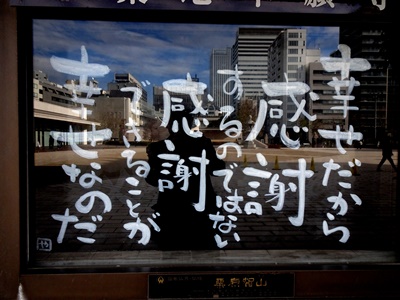 幸せだから
感謝
するのではない
感謝
できることが
幸せなのだ